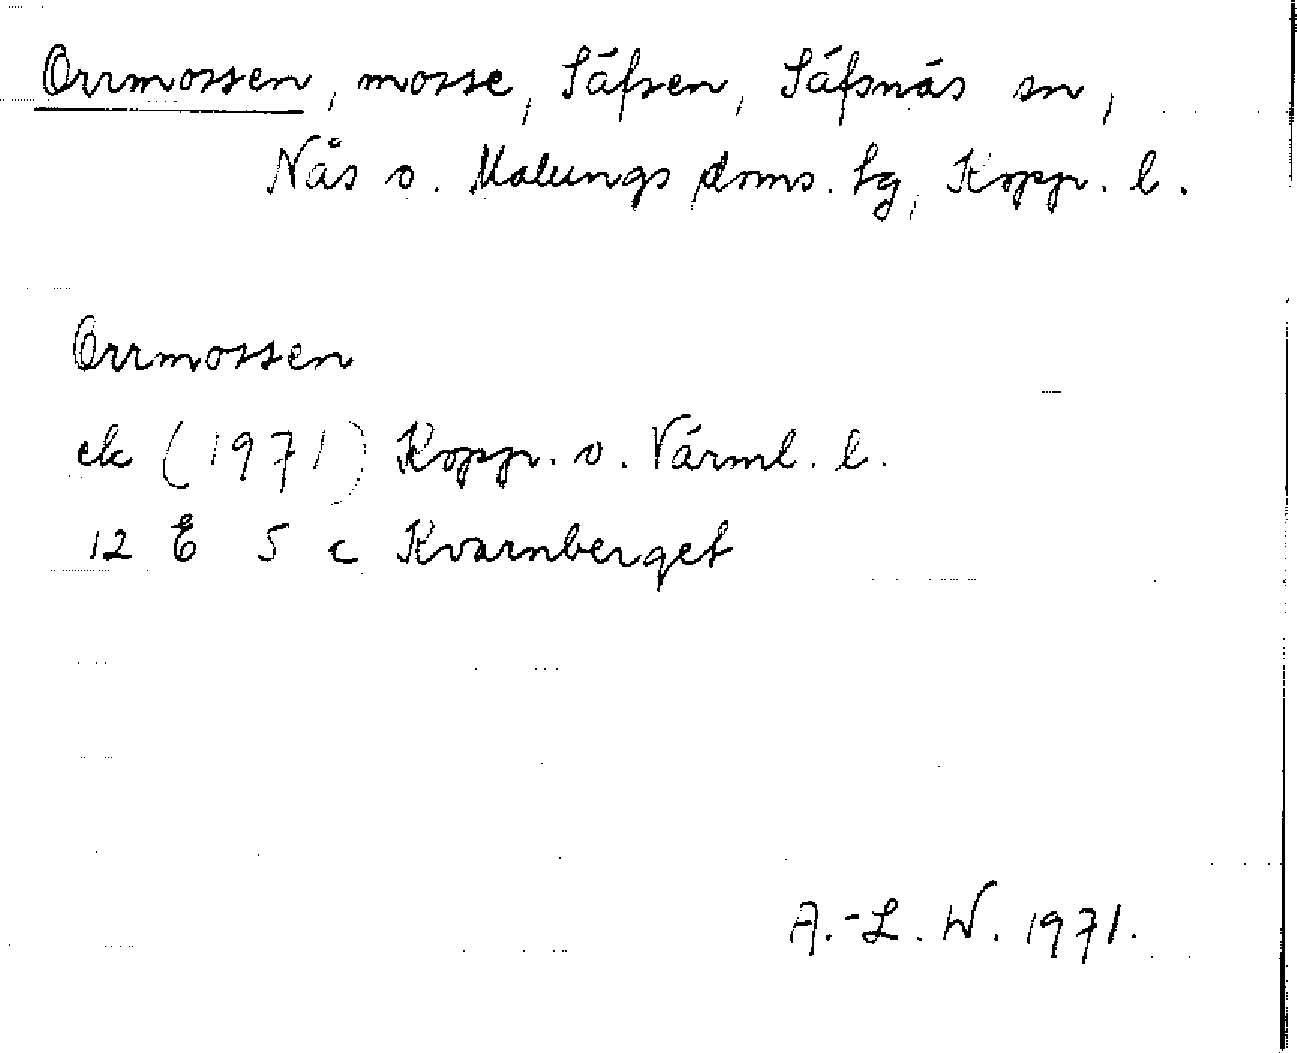 Orrmossen, mosse, Säfsen, Säfsnäs sn,
Nås o. Malungs doms. tg, Kopp. l.
Orrmossen
ek (1971) Kopp. o. Värml. l.
12 E 5 c Kvarnberget
A.-L. W. 1971.